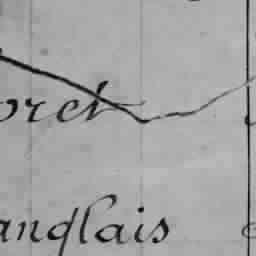 oret
anglais